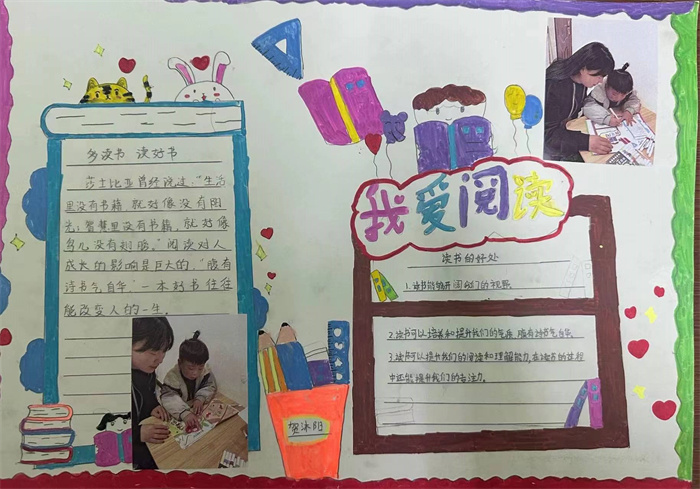 多读书 读好书
莎士比亚曾经说过:"生活
里没有书籍 就好像没有阳
光;智慧里没有书籍,就好像
鸟儿没有翅膀。"阅读对人
成长的影响是巨大的,"腹有
诗书气自华,一本好书往往
能改变人的一生。
我爱阅读
读书的好处
1.读书能够开阔我们的视野
2.读书可以培养和提升我们的气质,腹有诗书气自华。
3.读书可以提升我们的阅读和理解能力,在读书的过程
中还能提升我们的专注力。
贺沐阳